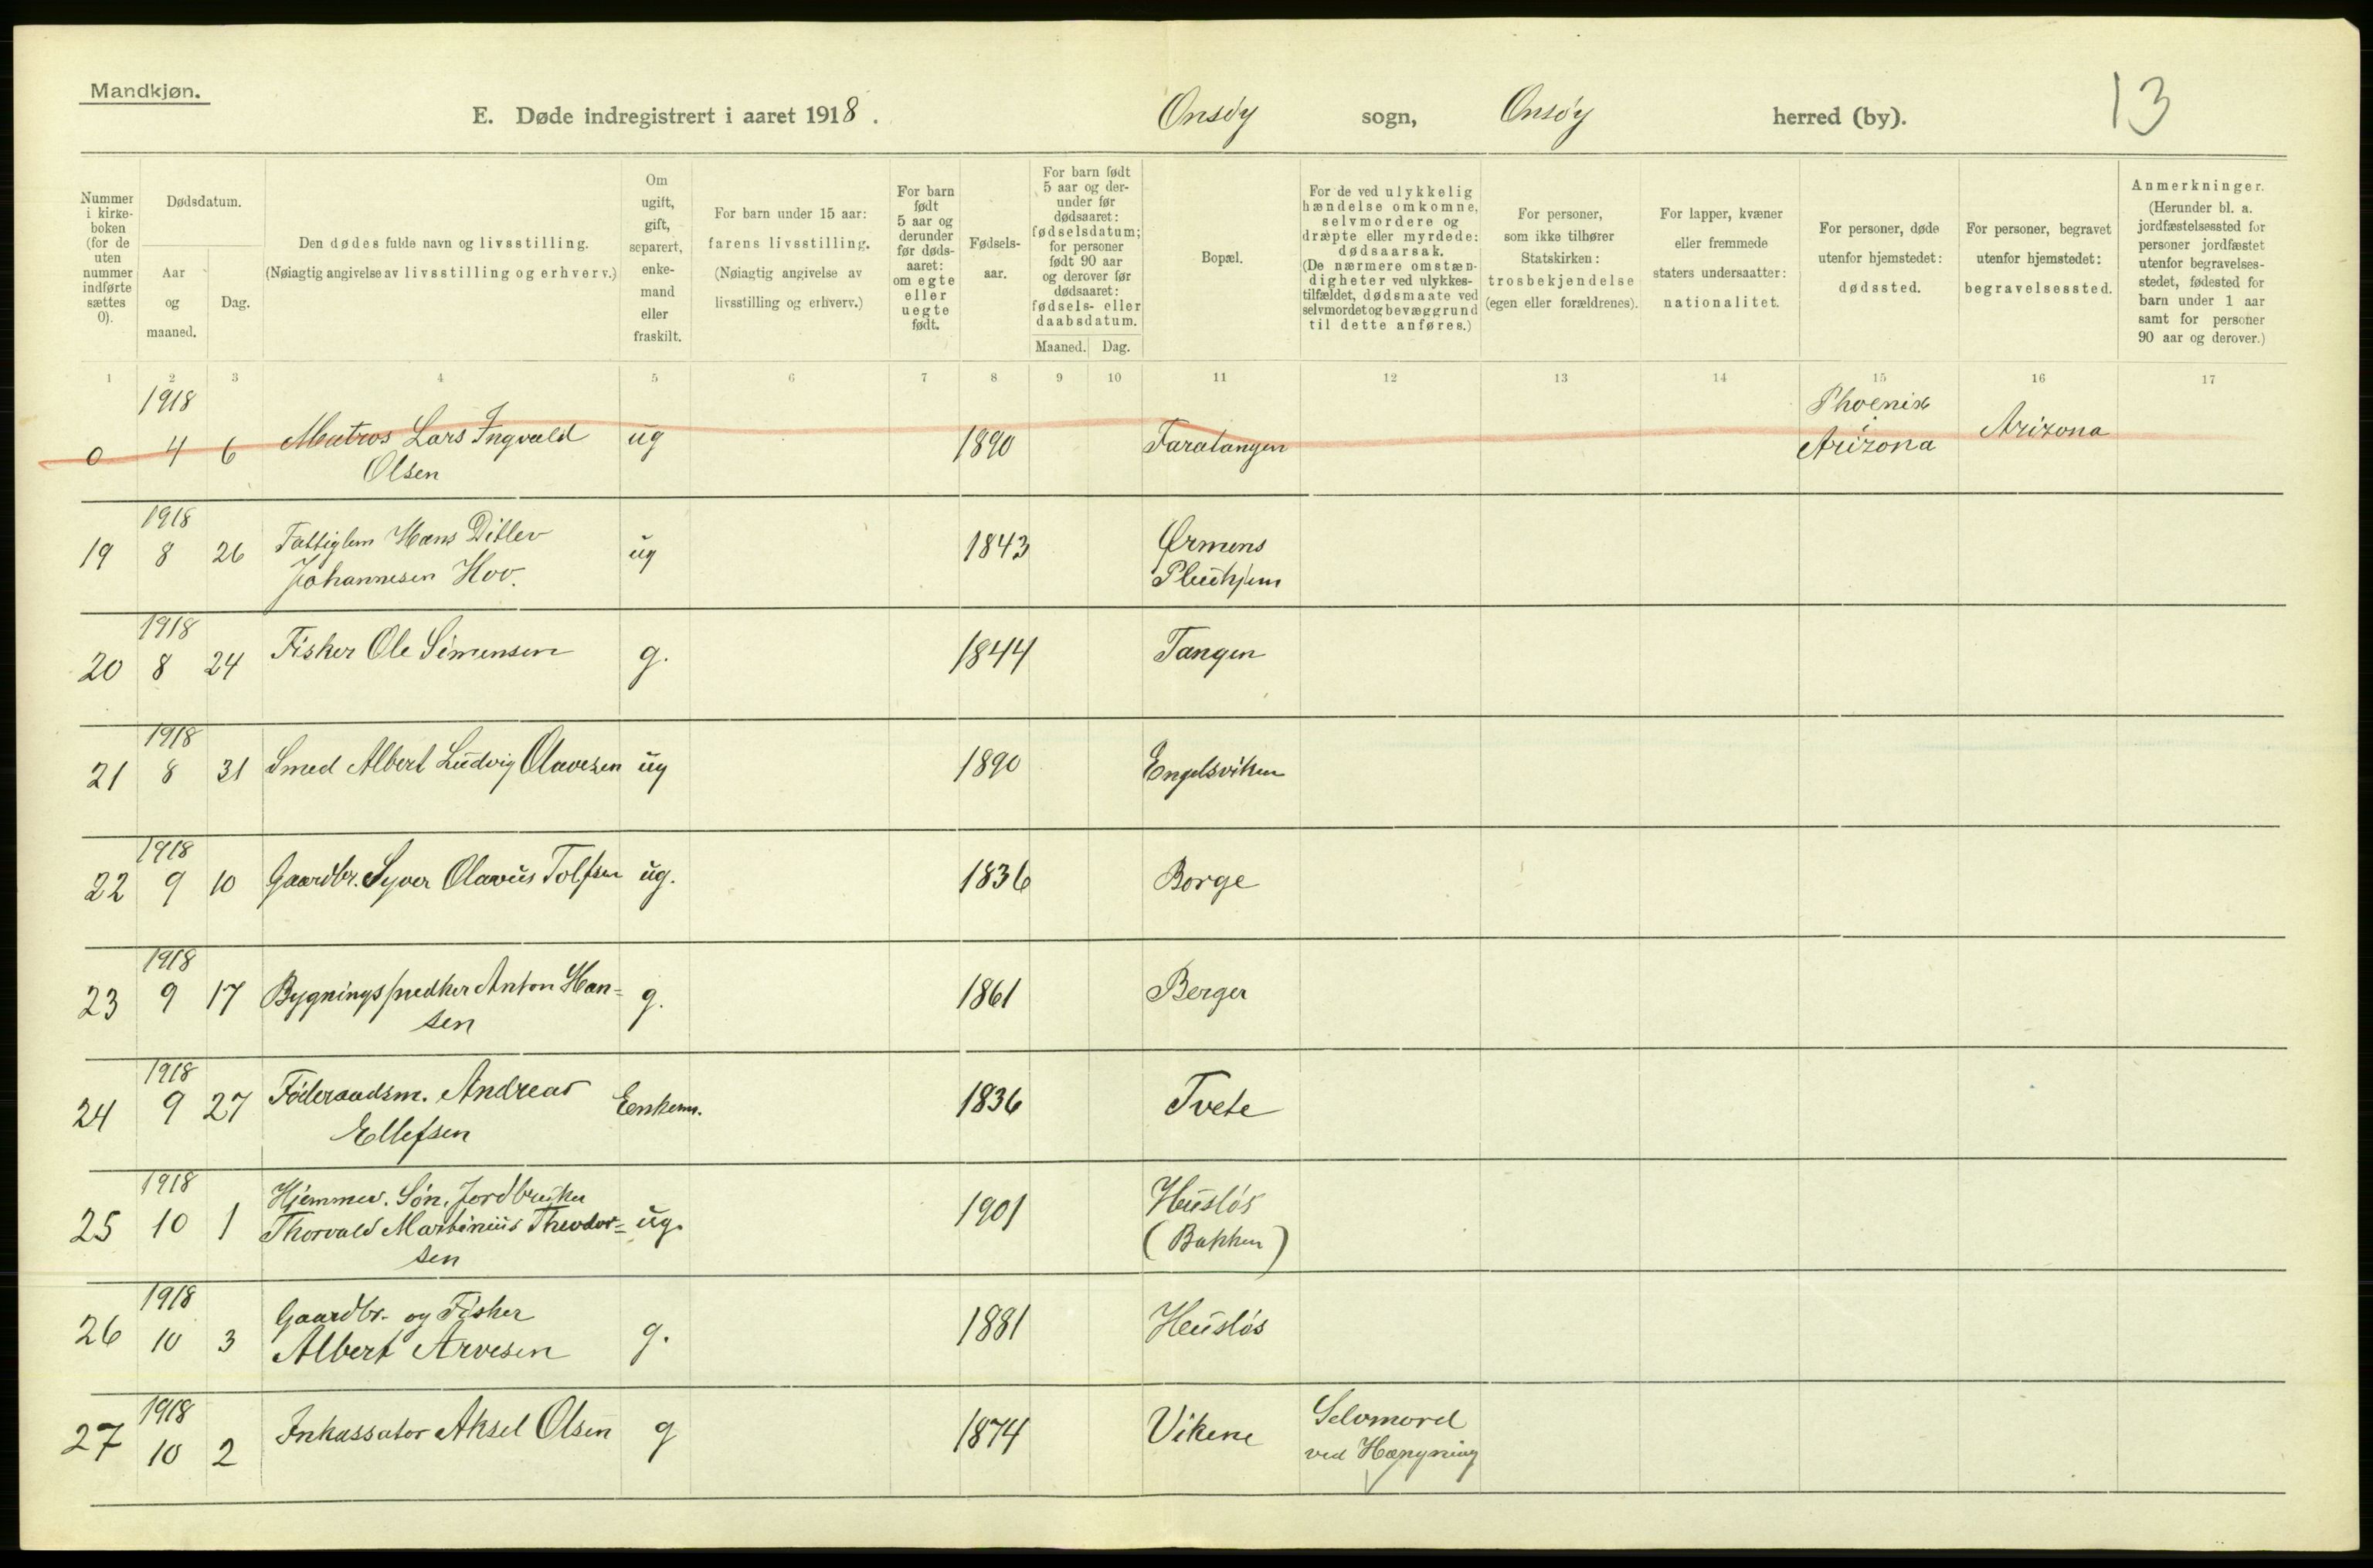 Mandkjøn.
E. Døde indregistrert i aaret 1918. Onsøy sogn, Onsøy herred (by). 13
Nummer i kirke-boken (for de uten nummer indførte sættes 0).
Dødsdatum.
Aar og maaned.
Dag.
Den dødes fulde navn og livsstilling.
(Nøiagtig angivelse av livsstilling og erhverv.)
Om ugift, gift, separert, enke-mand eller fraskilt.
For barn under 15 aar:
farens livsstilling.
(Nøiagtig angivelse av
livsstilling og erhverv.)
For barn født 5 aar og derunder før døds-aaret: om egte eller uegte født.
Fødsels-aar.
For barn født 5 aar og der-under før dødsaaret: fødselsdatum; for personer født 90 aar og derover før dødsaaret: fødsels- eller daabsdatum.
Maaned. Dag.
Bopæl.
For de ved ulykkelig hændelse omkomne, selvmordere og dræpte eller myrdede: dødsaarsak. (De nærmere omstæn-digheter ved ulykkes-tilfældet, dødsmaate ved selvmordet og bevæggrund til dette anføres.)
For personer, som ikke tilhører Statskirken: trosbekjendelse (egen eller forældrenes).
For lapper, kvæner eller fremmede staters undersaatter: nationalitet.
For personer, døde utenfor hjemstedet: dødssted.
For personer, begravet utenfor hjemstedet: begravelsessted.
Anmerkninger. (Herunder bl. a. jordfæstelsessted for personer jordfæstet utenfor begravelses-stedet, fødested for barn under 1 aar samt for personer 90 aar og derover.)
1 2 3 4 5 6 7 8 9 10 11 12 13 14 15 16 17
1918 Phoenix
0 4 6 Matros Lars Ingvald ug 1890 Faratangen Arizona Arizona
Olsen
1918
19 8 26 Fattiglem Hans Ditlev ug 1843 Ørmens
Johannesen Hov. Pleiehjem
1918
20 8 24 Fisker Ole Simensen g. 1844 Tangen
1918
21 8 31 Smed Albert Ludvig Olavesen ug 1890 Engelsviken
1918
22 9 10 Gaardbr. Syver Olavus Tolfsen ug. 1836 Borge
1918
23 9 17 Bygningssnedker Anton Han= g. 1861 Berger
sen
1918
24 9 27 Föderaadsm. Andreas Enkem. 1836 Tvete
Ellefsen
1918 Hjemmev. Sön, Jordbruker Husløs
25 10 1 Thorvald Martinius Theodor= ug. 1901 (Bakken)
sen
1918 Gaardbr. og Fisker
26 10 3 Albert Arvesen g. 1881 Husløs
1918 Selvmord
27 10 2 Inkassator Aksel Olsen g 1874 Vikene ved Hængning